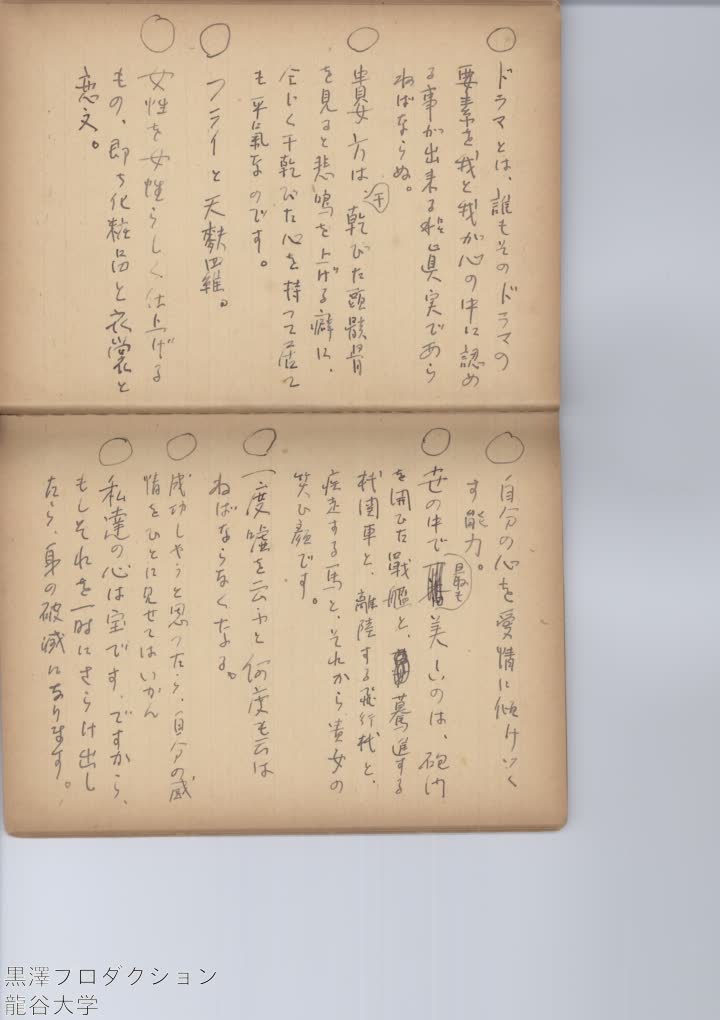 ○ドラマとは、誰もそのドラマの
要素を、我と我が心の中に認め
る事が出来る程眞実であら
ねばならぬ。
○貴女方は干乾びた頭骸骨
を見ると悲鳴を上げる癖に、
全じく干乾びた心を持つて居て
も平氣なのです。
○フライと天麩羅。
○女性を女性らしく仕上げる
もの、即ち化粧品と衣裳と
恋文。
○自分の心を愛情に傾けいく
す能力。
○世の中で最も美しいのは、砲門
を開ひた戰艦と、驀進する
機関車と、離陸する飛行機と、
疾走する馬と、それから貴女の
笑ひ顔です。
○一度嘘を云ふと何度も云は
ねばならなくなる。
○成功しやうと思つたら、自分の感
情をひとに見せてはいかん
○私達の心は宝です、ですから、
もしそれを一時にさらけ出し
たら、身の破滅になります。
黒澤プロダクション
龍谷大学